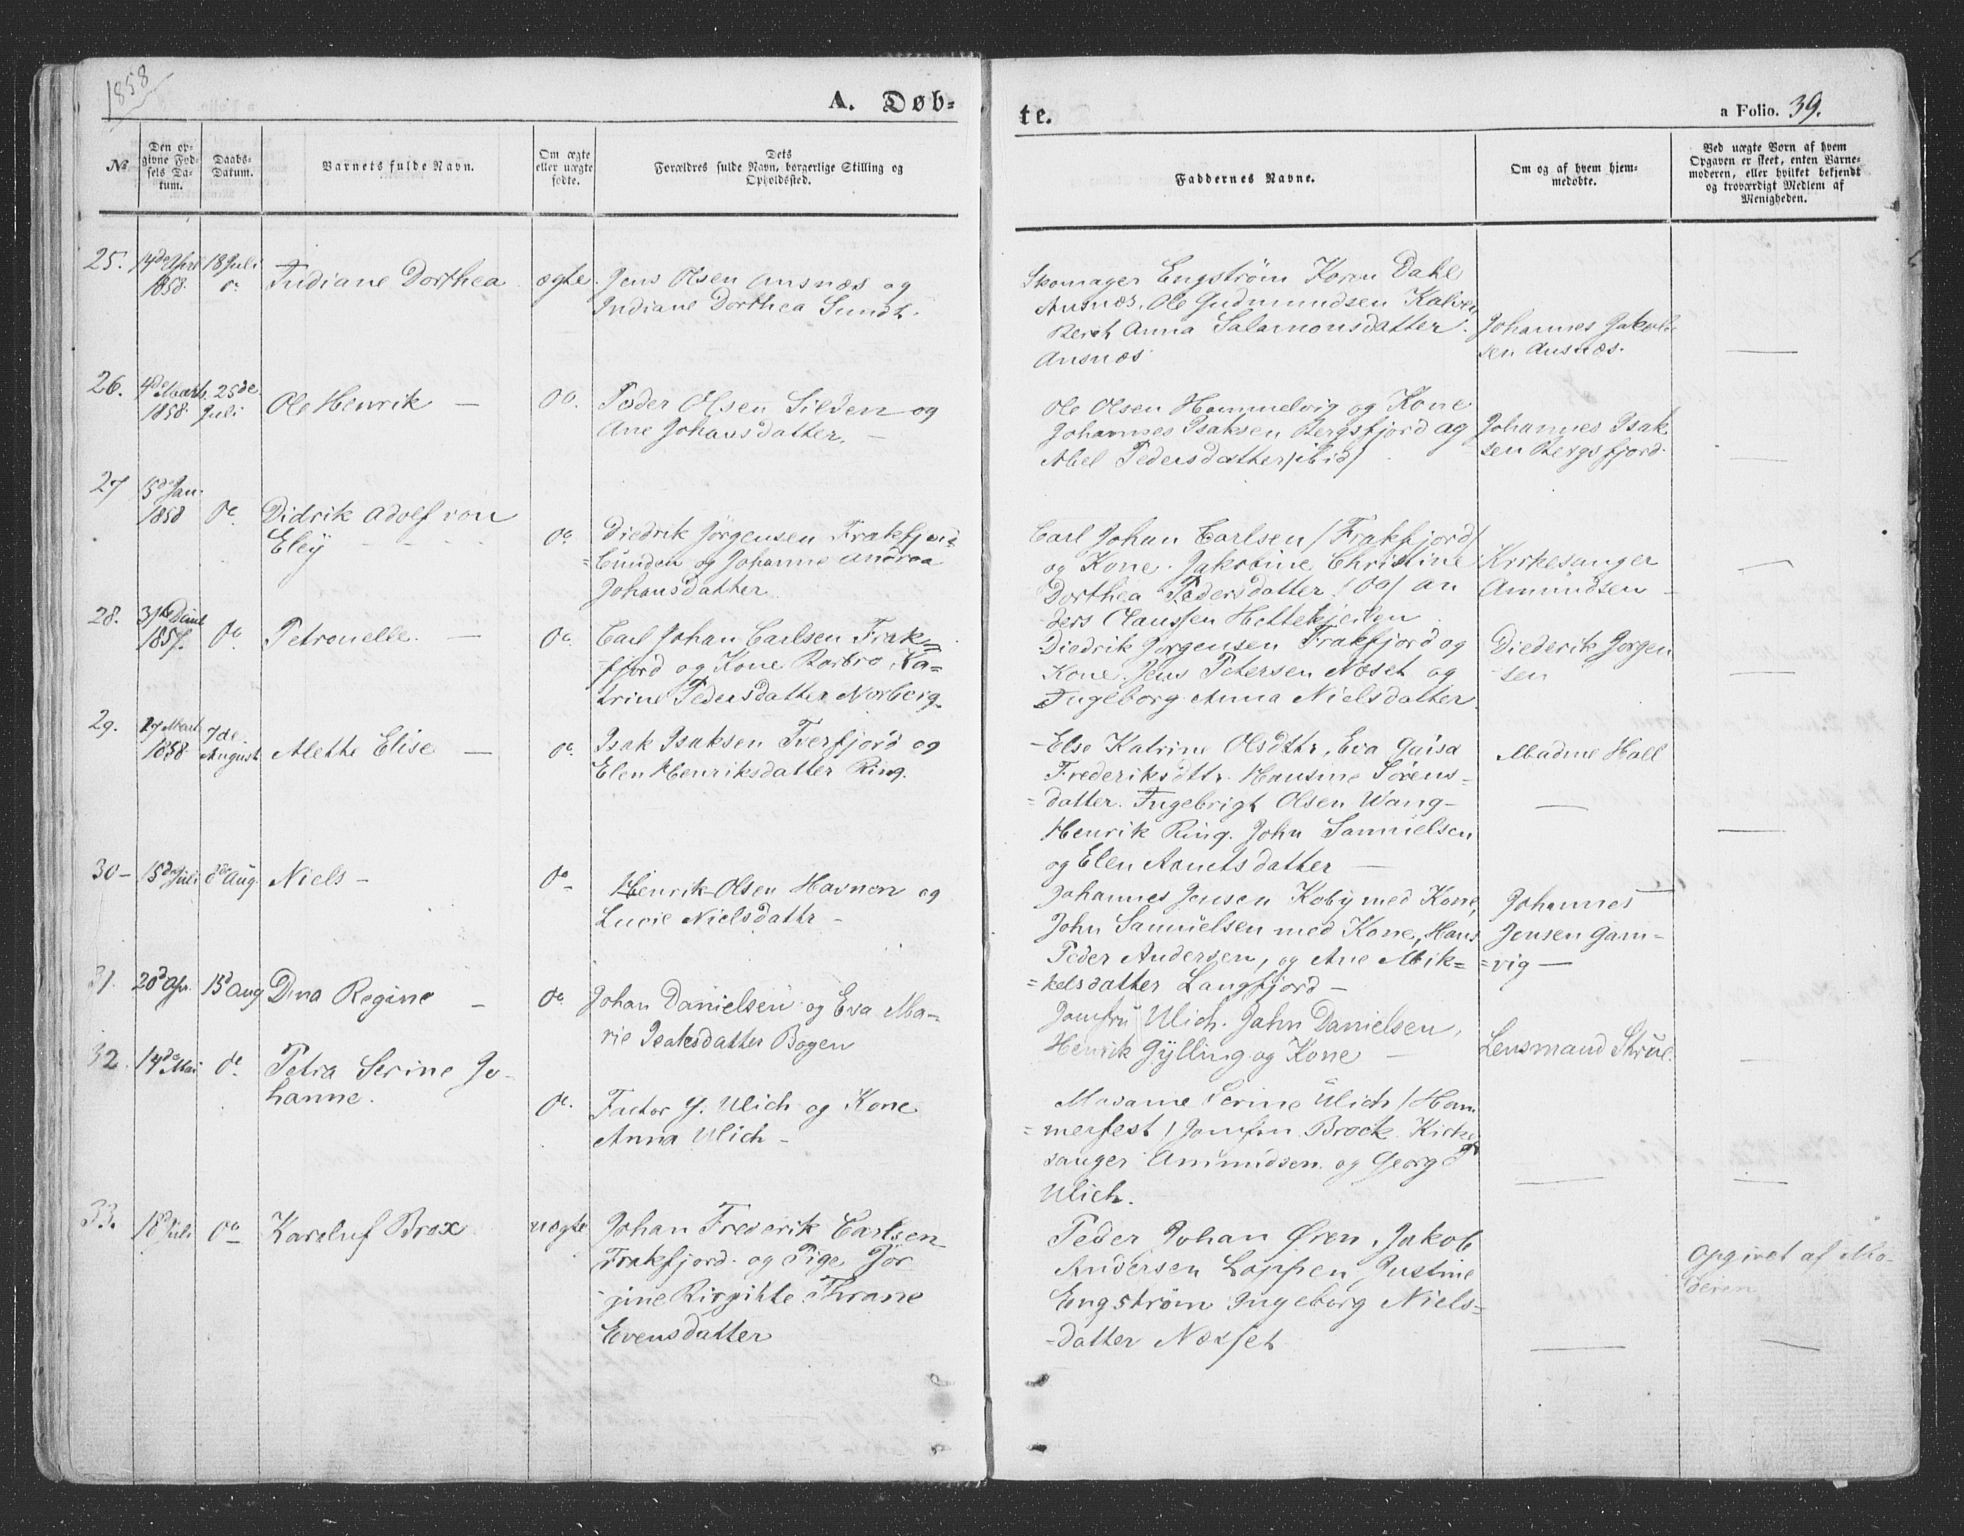 1858
A. Døb-
te.
a Folio. 39.
No.
Den op-
givne Fød-
sels Da-
tum.
Daabs-
Datum.
Barnets fulde Navn.
Om ægte
eller uægte
fødte.
Dets
Forældres fulde Navn, borgerlige Stilling og
Opholdssted.
Faddernes Navne.
Om og af hvem hjem-
medøbte.
Ved uægte Børn af hvem
Opgaven er skeet, enten Barne-
moderen, eller hvilket bekjendt
og troværdigt Medlem af
Menigheden.
25.
14de April
1858
18 Juli
Indiane Dorthea
ægte
Jens Olsen Ansnæs og
Indiane Dorthea Sundt.
Skomager Engstrøm Karen Dahl
Ansnæs. Ole Gudmundsen Kalven
Berit Anna Salamonsdatter
Ansnæs
Johannes Jakob-
sen Ansnæs.
26.
4de Marts
1858
25de
Juli
Ole Henrik —
Do.
Peder Olsen Silden og
Ane Johansdatter. —
Ole Olsen Hammelvig og Kone
Johannes Isaksen Bergsfjord og
Abel Pedersdatter /ibid/
Johannes Isak
sen Bergsfjord.
27
5de Jan.
1858
Do.
Didrik Adolf von
Eley
Do.
Diedrik Jørgensen Frakfjord
og Johanne Andrea
Johansdatter
Carl Johan Carlsen /Frakfjord/
og Kone. Jakobine Christine
Dorthea Pedersdatter /Do/ An
ders Claussen
Kirkesanger
Amundsen —
28.
31te
1857.
Do.
Petronelle. —
Do.
Carl Johan Carlsen Frak-
fjord og Kone Barbro Ka-
trine Pedersdatter Norberg
Diedrik Jørgensen Frakfjord og
Kone. Jens Petersen Næset og
Ingeborg Anna Nielsdatter
Diederik Jørgen
-sen
29.
17 Marts
1858
7de
August
Alette Elise —
Do.
Isak Isaksen Tverfjord og
Elen Henriksdatter Ring.
Else Katrine Olsdttr, Eva Gaisa
Frederiksdttr. Hansine Sørens-
datter. Ingebrigt Olsen Wang-
Henrik Ring. John Samuelsen
og Elen Amutsdatter —
Madme Hall
30-
15de Juli
8de Aug.
Niels -
Do
Henrik Olsen Havnen og
Lucie Nielsdattr -
Johannes Jensen Koby med Kone,
John Samuelsen med Kone, Hans
Peder Andersen, og Ane Mik-
kelsdatter Langfjord —
Johannes
Jensen Gam-
=vig —
31.
20d Apr.
15d Aug
Dina Regine —
Do.
Johan Danielsen og Eva Ma-
rie Isaksdatter Bogen
Jomfru Ulich. John Danielsen,
Henrik Gylling og Kone —
Lensmand
32.
14de Mai
Do.
Petra Serine Jo-
hanne.
Do.
Factor J. Ulich og Kone
Anna Ulich -
Madame Serine Ulich /Ham
=merfest/ Jomfru Brock. Kirke
sanger Amundsen og Georg
Ulich.
33.
18d Juli
Do
Karoluf Brox
uægte
Johan Frederik Carlsen
Frakfjord. og Pige Jør
gine Birgitte Thrane
Evensdatter
Peder Johan Øren, Jakob
Andersen Loppen, Justine
Engstrøm Ingeborg Niels-
datter Næsset
Opgivet af Mo-
deren